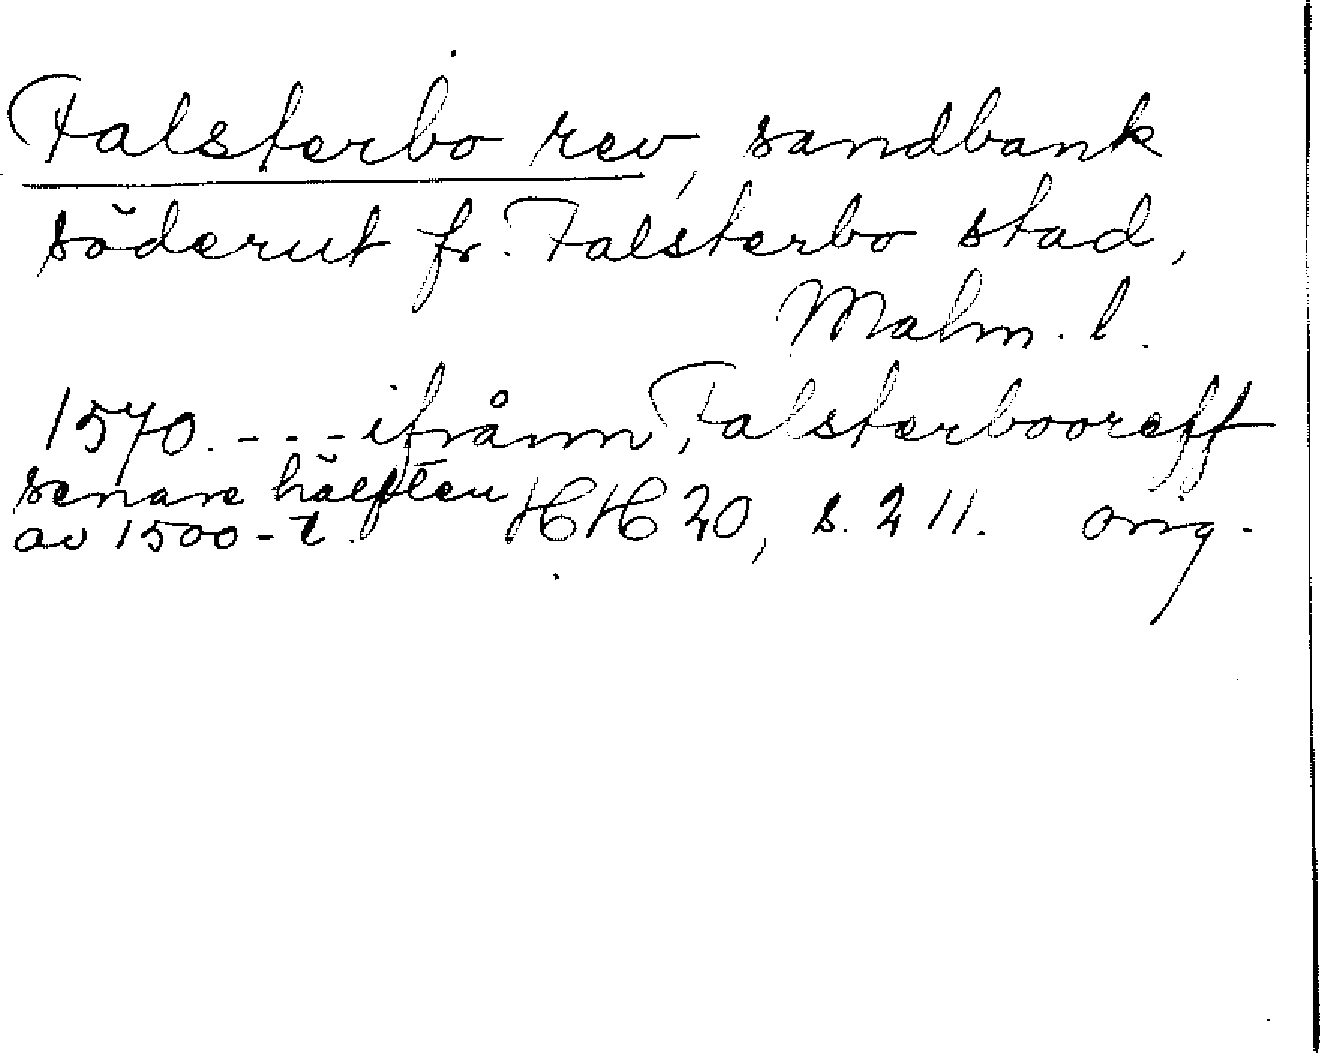 Falsterbo rev, sandbank
söderut fr. Falsterbo stad,
Malm. l.
1570. - - - ifrånn Falsterbooreff
senare hälften
av 1500-t. HH 20, s. 211. orig.